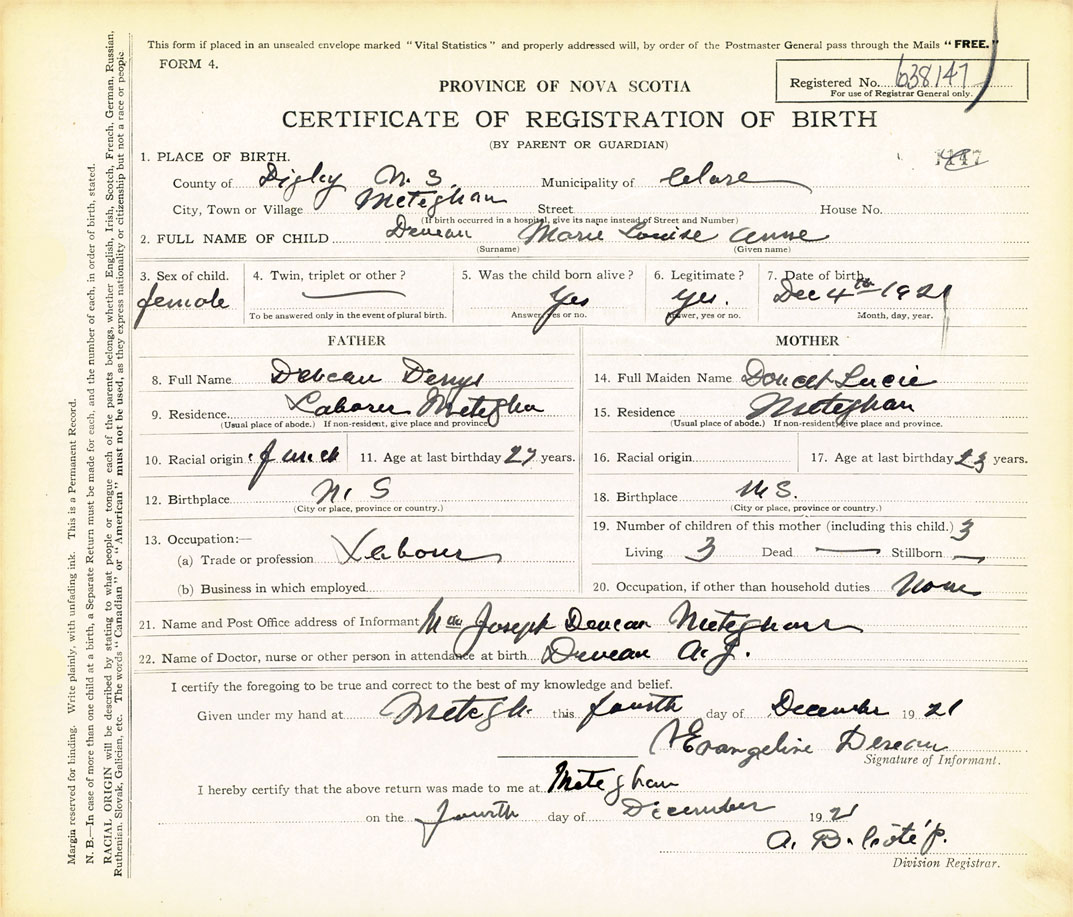 This form if placed in an unsealed envelope marked "Vital Statistics" and properly addressed will, by order of the Postmaster General pass through the Mails "FREE."
FORM 4.
Registered No. 638147
For use of Registrar General only.
PROVINCE OF NOVA SCOTIA
CERTIFICATE OF REGISTRATION OF BIRTH
(BY PARENT OR GUARDIAN)
1. PLACE OF BIRTH.
County of Digby N. S. Municipality of Clare
City, Town or Village Meteghan Street House No.
(If birth occurred in a hospital, give its name instead of Street and Number)
2. FULL NAME OF CHILD Deveau Marie Louise Anne
(Surname) (Given name)
3. Sex of child. 4. Twin, triplet or other? 5. Was the child born alive? 6. Legitimate? 7. Date of birth.
female Yes Yes. Dec 4th 1921
To be answered only in the event of plural birth. Answer, yes or no. Answer, yes or no. Month, day, year.
FATHER
8. Full Name Deveau Denys
9. Residence. Laborer Meteghan
(Usual place of abode.) If non-resident, give place and province.
10. Racial origin: french 11. Age at last birthday 27 years.
12. Birthplace N. S
(City or place, province or country.)
13. Occupation:—
(a) Trade or profession Labourer
(b) Business in which employed
MOTHER
14. Full Maiden Name Doucet Lucie
15. Residence Meteghan
(Usual place of abode.) If non-resident, give place and province.
16. Racial origin 17. Age at last birthday 23 years.
18. Birthplace N S.
(City or place, province or country.)
19. Number of children of this mother (including this child.) 3
Living 3 Dead — Stillborn —
20. Occupation, if other than household duties None
21. Name and Post Office address of Informant Joseph Deveau Meteghan
22. Name of Doctor, nurse or other person in attendance at birth Deveau A. J.
I certify the foregoing to be true and correct to the best of my knowledge and belief.
Given under my hand at Metegh. this fourth day of December 1921
Evangeline Deveau
Signature of Informant.
I hereby certify that the above return was made to me at Meteghan
on the fourth day of December 1921
A. B. Côté p.
Division Registrar.
Margin reserved for binding. Write plainly, with unfading ink. This is a Permanent Record.
N. B.—In case of more than one child at a birth, a Separate Return must be made for each, and the number of each, in order of birth, stated.
RACIAL ORIGIN will be described by stating to what people or tongue each of the parents belongs, whether English, Irish, Scotch, French, German, Russian,
Ruthenian, Slovak, Galician, etc. The words "Canadian" or "American" must not be used, as they express nationality or citizenship but not a race or people